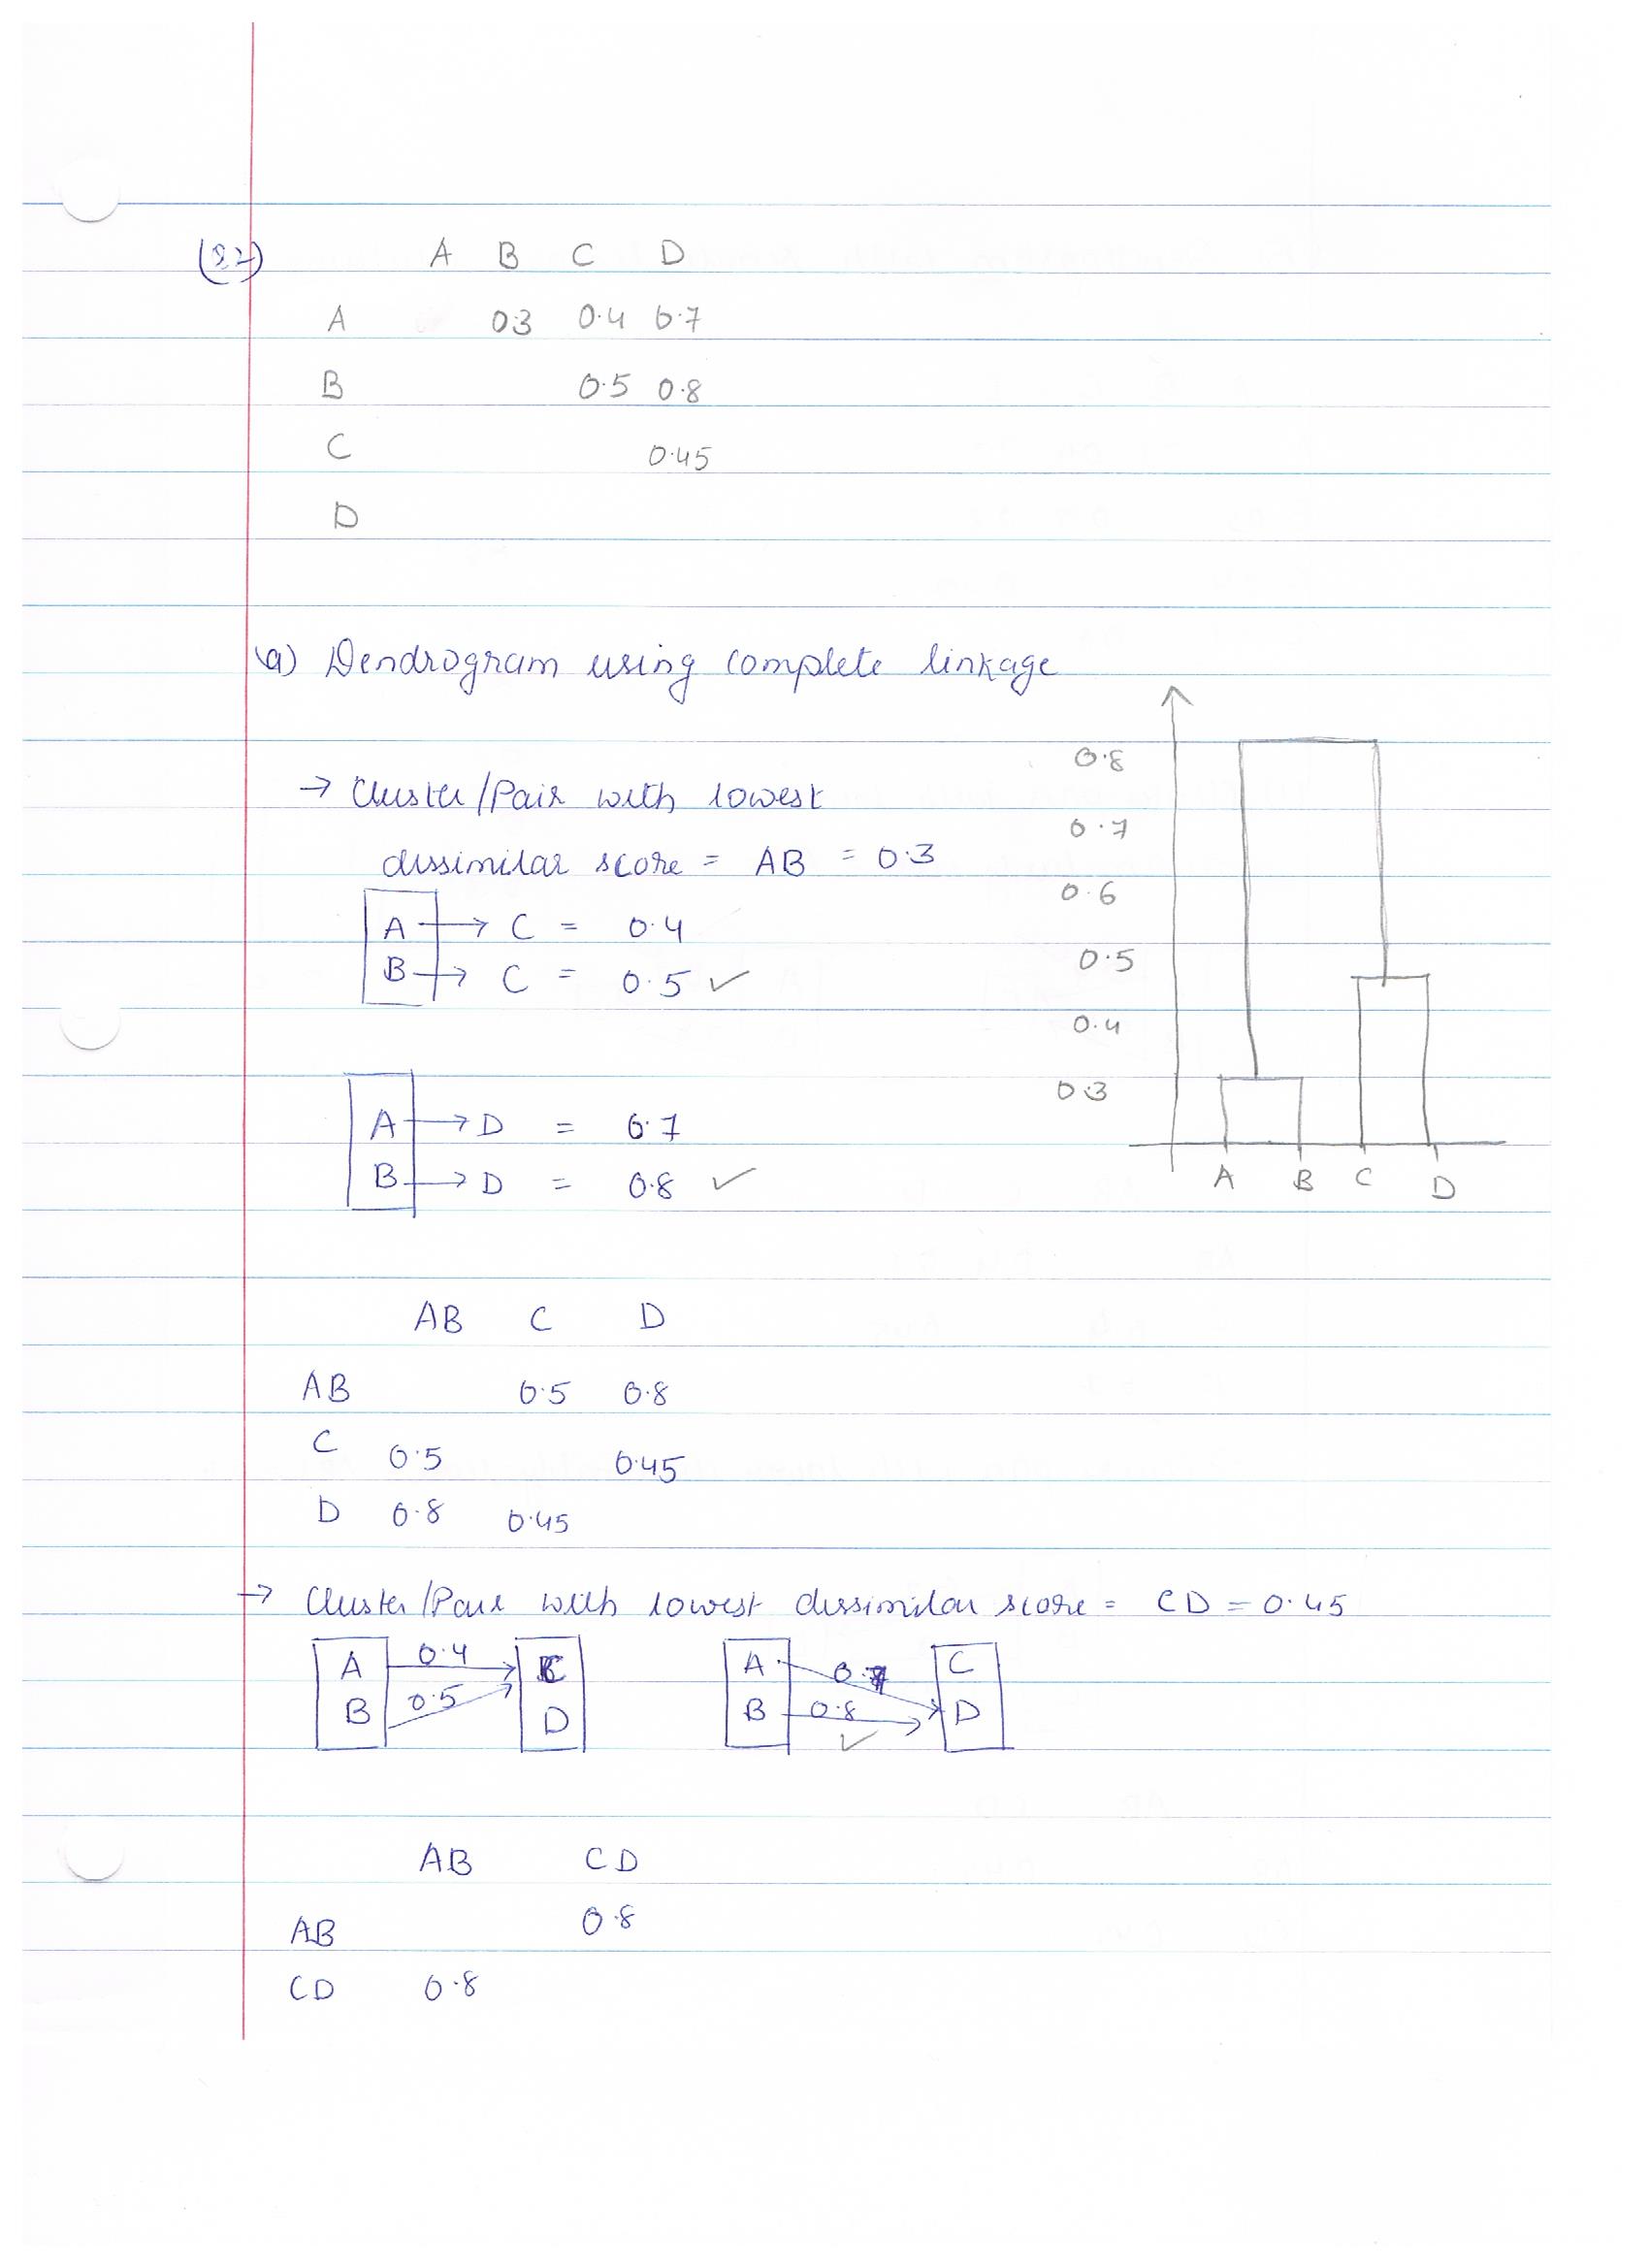 (Q2) A B C D
A 0.3 0.4 0.7
B 0.5 0.8
C 0.45
D
(a) Dendrogram using complete linkage
→ Cluster/Pair with lowest
dissimilar score = AB = 0.3
A → C = 0.4
B → C = 0.5 ✓
A → D = 0.7
B → D = 0.8 ✓
0.8
0.7
0.6
0.5
0.4
0.3
A B C D
AB C D
AB 0.5 0.8
C 0.5 0.45
D 0.8 0.45
→ Cluster/Pair with lowest dissimilar score = CD = 0.45
A 0.4 C A 0.7 C
B 0.5 D B 0.8 D
✓
AB CD
AB 0.8
CD 0.8